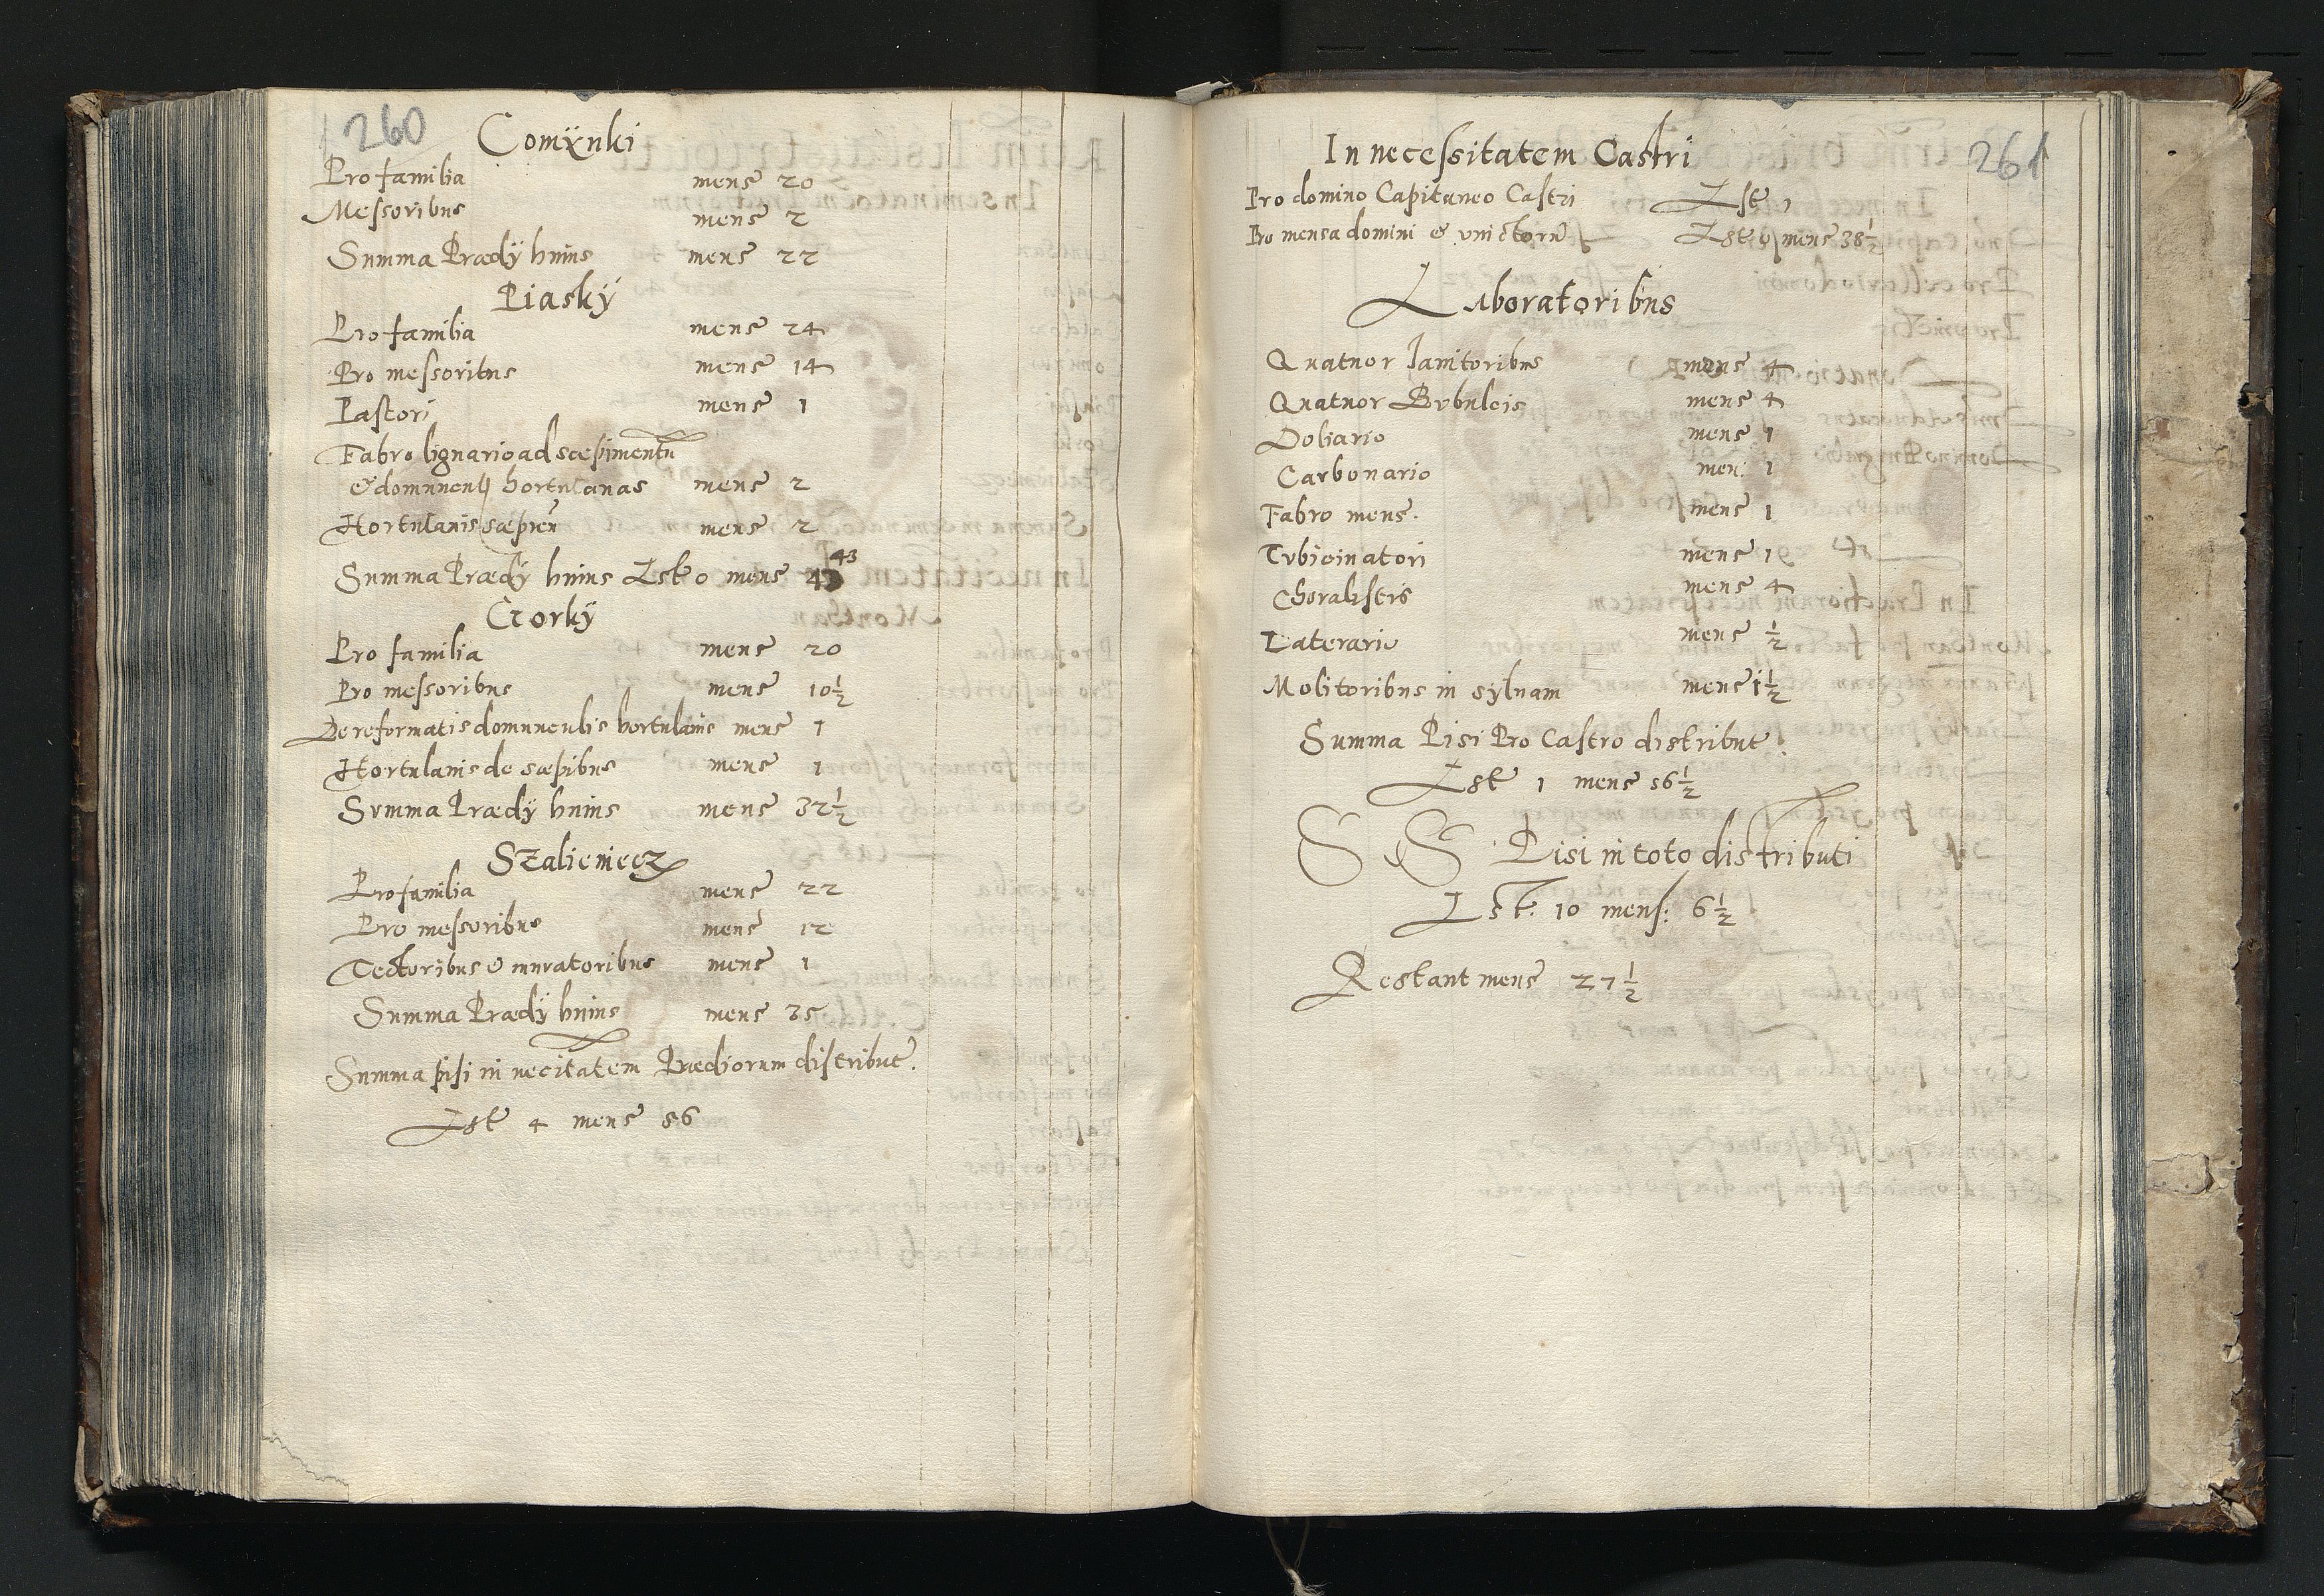 260
Comÿnki
Pro familia mens 20
Messoribus mens 2
Summa Prædÿ huius mens 22
Piaskÿ
Pro familia mens 24
Pro messoribus mens 14
Pastori mens 1
Fabro lignario ad sæpimentū
& domuncul hortulanas mens 2
Hortulanis sæpien mens 2
Summa Prædÿ huius Lst 0 mens 43
43
Gorkÿ
Pro familia mens 20
Pro messoribus mens 10½
De reformatis domunculis hortulanis mens 1
Hortulanis de sæpibus mens 1
Summa Prædÿ huius mens 32½
Szalieniecz
Pro familia mens 22
Pro messoribus mens 12
Tectoribus & muratoribus mens 1
Summa Prædÿ huius mens 35
Summa pisi in necitatem Prædiorum distribut.
Lst 4 mens 56
261
In necessitatem Castri
Pro domino Capitaneo Castri Lst 1
Pro mensa domini & vnictorū Lst 0 mens 38½
Laboratoribus
Quatuor Ianitoribus mens 4
Quatuor Bubulcis mens 4
Doliario mens 1
Carbonario men: 1
Fabro mens. mens 1
Tubicinatori mens 1
Choralistis mens 4
Laterario mens ½
Molitoribus in syluam mens 1½
Summa Pisi Pro Castro distribut.
Lst 1 mens 56½
S S Pisi in toto distributi
Lst. 10 mens: 6½
Restant mens 27½